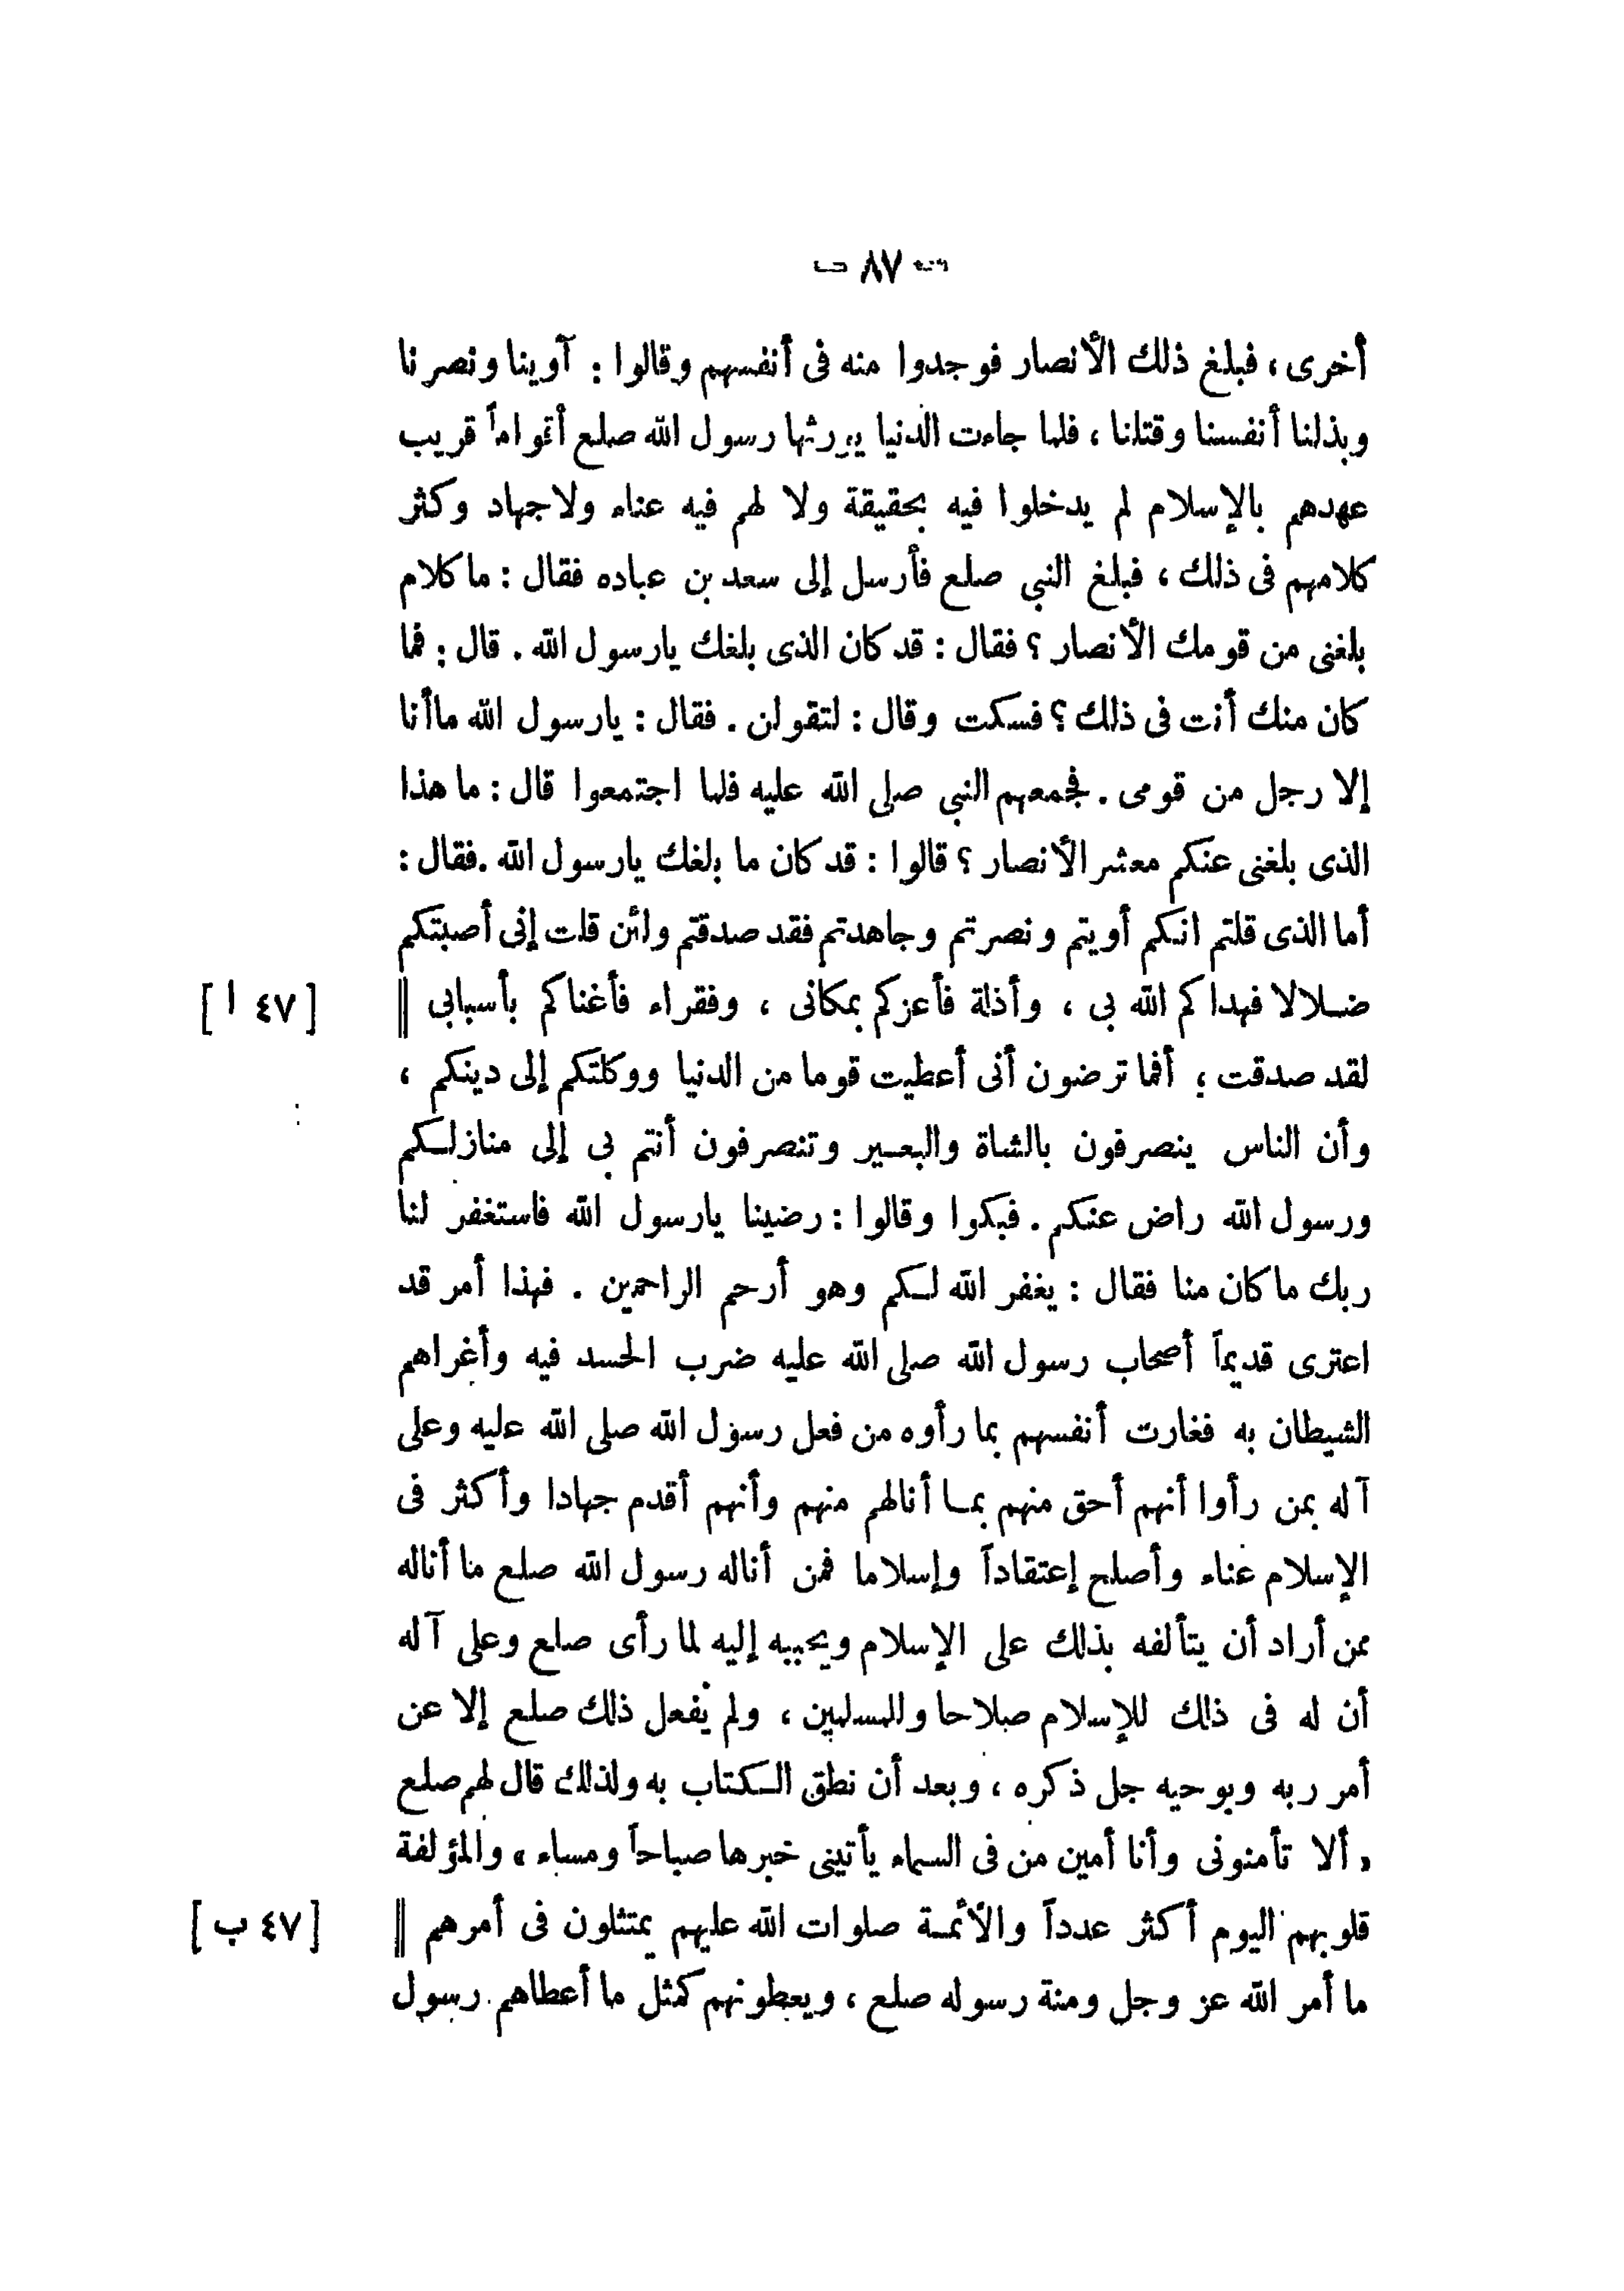 — ٨٧ —
أخرى ، فبلغ ذلك الأنصار فوجدوا منه فى أنفسهم وقالوا : آوينا ونصرنا
وبذلنا أنفسنا وقتلنا ، فلما جاءت الدنيا يورثها رسول الله صلع أقواماً قريب
عهدهم بالإسلام لم يدخلوا فيه بحقيقة ولا لهم فيه عناء ولا جهاد وكثر
كلامهم فى ذلك ، فبلغ النبى صلع فأرسل إلى سعد بن عباده فقال : ما كلام
بلغنى من قومك الأنصار ؟ فقال : قد كان الذى بلغك يارسول الله . قال : فما
كان منك أنت فى ذلك ؟ فسكت وقال : لتقولن . فقال : يارسول الله ما أنا
إلا رجل من قومى . فجمعهم النبى صلى الله عليه فلما اجتمعوا قال : ما هذا
الذى بلغنى عنكم معشر الأنصار ؟ قالوا : قد كان ما بلغك يارسول الله . فقال :
أما الذى قلتم انكم أويتم ونصرتم وجاهدتم فقد صدقتم ولئن قلت إنى أصبتكم
ضلالا فهداكم الله بى ، وأذلة فأعزكم بمكانى ، وفقراء فأغناكم بأسبابى || [ ٤٧ ا ]
لقد صدقت ؛ أفما ترضون أنى أعطيت قوما من الدنيا ووكلتكم إلى دينكم ،
وأن الناس ينصرفون بالشاة والبعير وتنصرفون أنتم بى إلى منازلكم
ورسول الله راض عنكم . فبكوا وقالوا : رضينا يارسول الله فاستغفر لنا
ربك ما كان منا فقال : يغفر الله لكم وهو أرحم الراحمين . فهذا أمر قد
اعترى قديماً أصحاب رسول الله صلى الله عليه ضرب الحسد فيه وأغراهم
الشيطان به فغارت أنفسهم بما رأوه من فعل رسول الله صلى الله عليه وعلى
آله بمن رأوا أنهم أحق منهم بما أنالهم منهم وأنهم أقدم جهادا وأكثر فى
الإسلام عناء وأصلح إعتقاداً وإسلاما فمن أناله رسول الله صلع ما أناله
ممن أراد أن يتألفه بذلك على الإسلام ويحببه إليه لما رأى صلع وعلى آله
أن له فى ذلك للإسلام صلاحا وللمسلمين ، ولم يفعل ذلك صلع إلا عن
أمر ربه وبوحيه جل ذكره ، وبعد أن نطق الكتاب به ولذلك قال لهم صلع
« ألا تأمنونى وأنا أمين من فى السماء يأتينى خبرها صباحاً ومساء » والمؤلفة
قلوبهم اليوم أكثر عدداً والأئمة صلوات الله عليهم يمتثلون فى أمرهم || [ ٤٧ ب ]
ما أمر الله عز وجل ومنة رسوله صلع ، ويعطونهم كمثل ما أعطاهم رسول